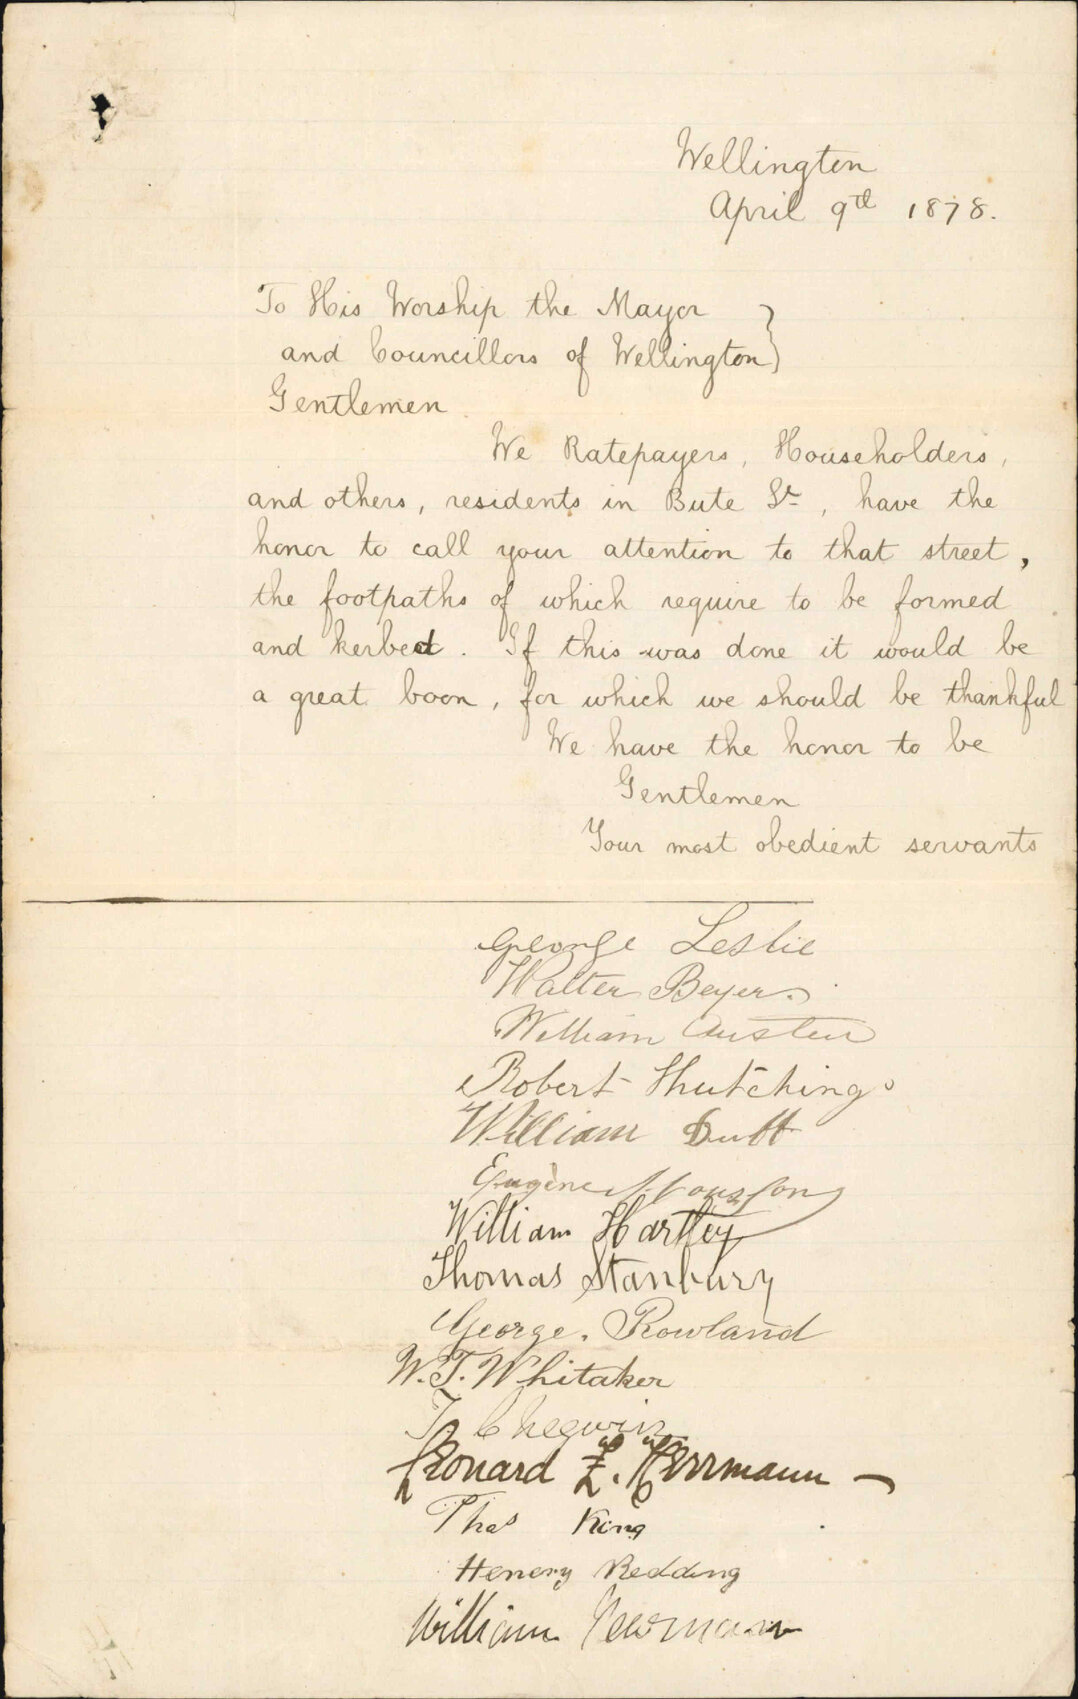 Wellington
April 9th 1878.
To His Worship the Mayor
and Councillors of Wellington}
Gentlemen
We Ratepayers, Householders,
and others, residents in Bute St, have the
honor to call your attention to that street,
the footpaths of which require to be formed
and kerbed. If this was done it would be
a great boon, for which we should be thankful
We have the honor to be
Gentlemen
Your most obedient servants
George Leslie
Walter Beyer.
William Austen
Robert Hutchings
William
Eugene
William Hartley
Thomas Stanbury
George. Rowland
W. T. Whitaker
T Chegwin
Leonard Z. Herrmann
Thos King
Henery Redding
William Newman